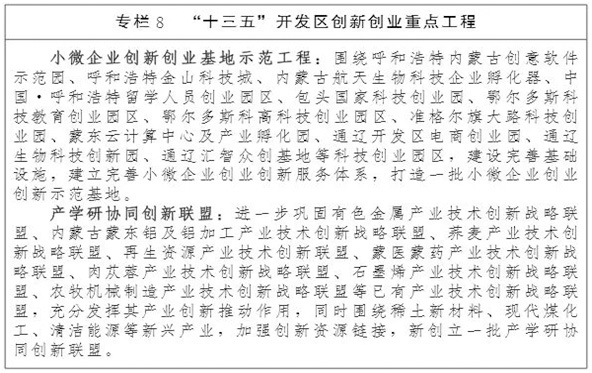 专栏 8 “十三五”开发区创新创业重点工程
小微企业创新创业基地示范工程：围绕呼和浩特内蒙古创意软件
示范园、呼和浩特金山科技城、内蒙古航天生物科技企业孵化器、中
国·呼和浩特留学人员创业园区、包头国家科技创业园、鄂尔多斯科
技教育创业园区、鄂尔多斯高科技创业园区、准格尔旗大路科技创
业园、蒙东云计算中心及产业孵化园、通辽开发区电商创业园、通辽
生物科技创新园、通辽汇智众创基地等科技创业园区，建设完善基础
设施，建立完善小微企业创业创新服务体系，打造一批小微企业创业
创新示范基地。
产学研协同创新联盟：进一步巩固有色金属产业技术创新战略联
盟、内蒙古蒙东铝及铝加工产业技术创新战略联盟、荞麦产业技术创
新战略联盟、再生资源产业技术创新联盟、蒙医蒙药产业技术创新战
略联盟、肉苁蓉产业技术创新战略联盟、石墨烯产业技术创新战略联
盟、农牧机械制造产业技术创新战略联盟等已有产业技术创新战略联
盟，充分发挥其产业创新推动作用，同时围绕稀土新材料、现代煤化
工、清洁能源等新兴产业，加强创新资源链接，新创立一批产学研协
同创新联盟。